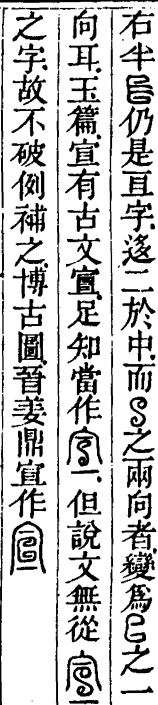 右半𠄢仍是亘字迻二於中而𠃉之兩向者變爲㔾之一
向耳玉篇宣有古文𡩀足知當作但說文無從
之字故不破例補之博古圖晉姜鼎宣作